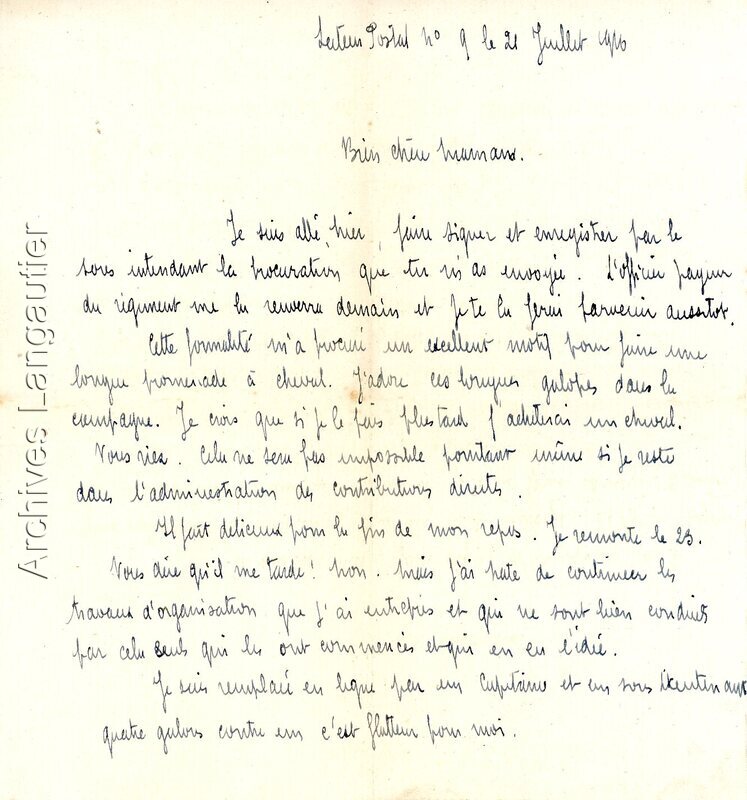 Secteur Postal n° 9 le 21 Juillet 1916
Bien chère maman.
Je suis allé, hier, faire signer et enregistrer par le
sous intendant la procuration que tu m'as envoyée. L'officier payeur
du régiment me la renverra demain et je te la ferai parvenir aussitot.
Cette formalité m'a procuré un excellent motif pour faire une
longue promenade à cheval. J'adore ces longues galopes dans la
campagne. Je crois que si je le puis plus tard j'acheterai un cheval.
Vous riez. Cela ne sera pas impossible pourtant même si je reste
dans l'administration des contributions directes.
Il fait délicieux pour la fin de mon repos. Je remonte le 23.
Vous dire qu'il me tarde! non. mais j'ai hate de continuer les
travaux d'organisation que j'ai entrepris et qui ne sont bien conduits
par celui seuls qui les ont commencés et qui en en l'idée.
Je suis remplacé en ligne par un Capitaine et un sous lieutenant
quatre galons contre un c'est flatteur pour moi.
Archives Langautier